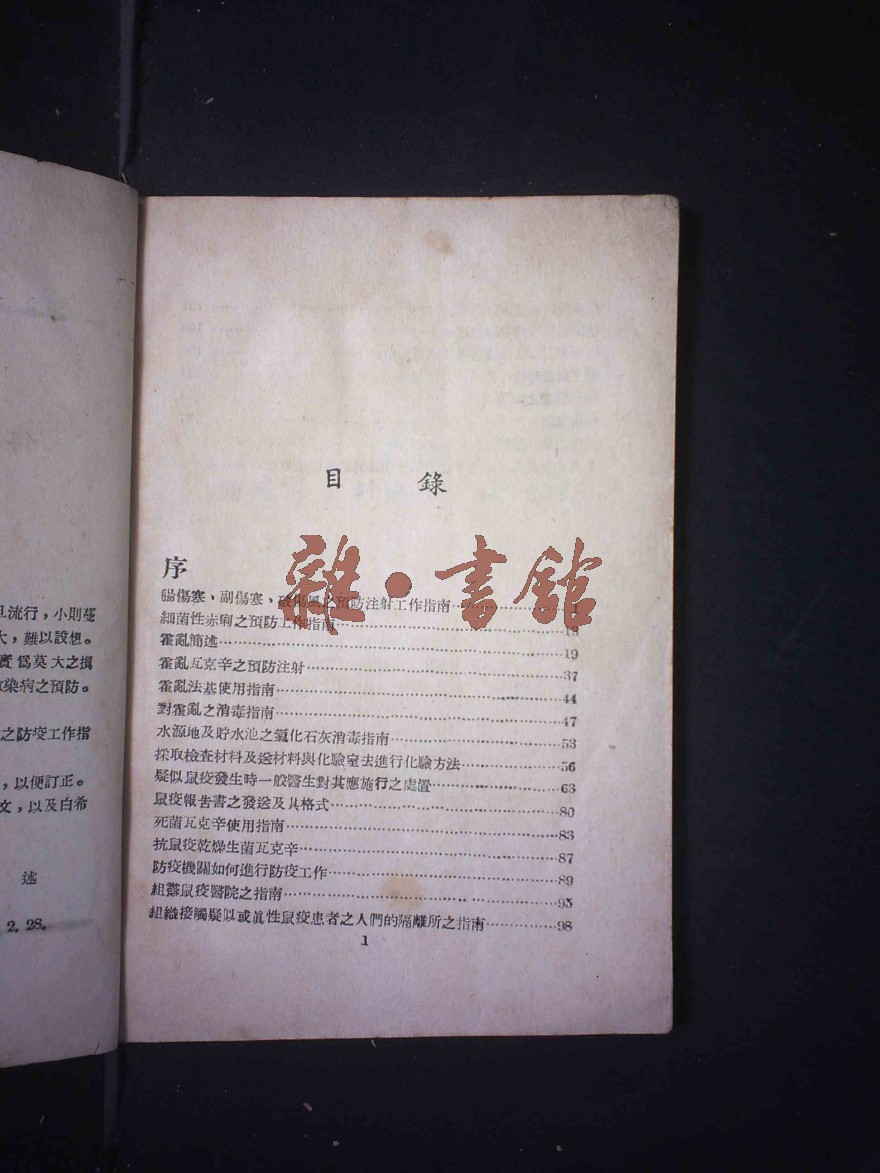 旦流行,小則蔓
大,難以設想。
實爲莫大之損
染病之預防。
之防疫工作指
,以便訂正。
文,以及白希
述
2. 28.
目 錄
序
腸傷寒、副傷寒、破傷風之預防注射工作指南 1
細菌性赤痢之預防工作指南 18
霍亂簡述 19
霍亂瓦克辛之預防注射 37
霍亂法基使用指南 44
對霍亂之消毒指南 47
水源地及貯水池之氯化石灰消毒指南 53
採取檢查材料及送材料與化驗室去進行化驗方法 56
疑似鼠疫發生時一般醫生對其應施行之處置 63
鼠疫報告書之發送及其格式 80
死菌瓦克辛使用指南 83
抗鼠疫乾燥生菌瓦克辛 87
防疫機關如何進行防疫工作 89
組織鼠疫醫院之指南 95
組織接觸疑似或眞性鼠疫患者之人們的隔離所之指南 98
1
雜·書館